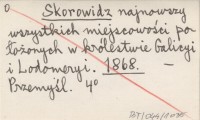 0
Skorowidz najnowszy
wszystkich miejscowości po
łożonych w królestwie Galicyi
i Lodomeryi. 1868. -
Przemyśl. 4°